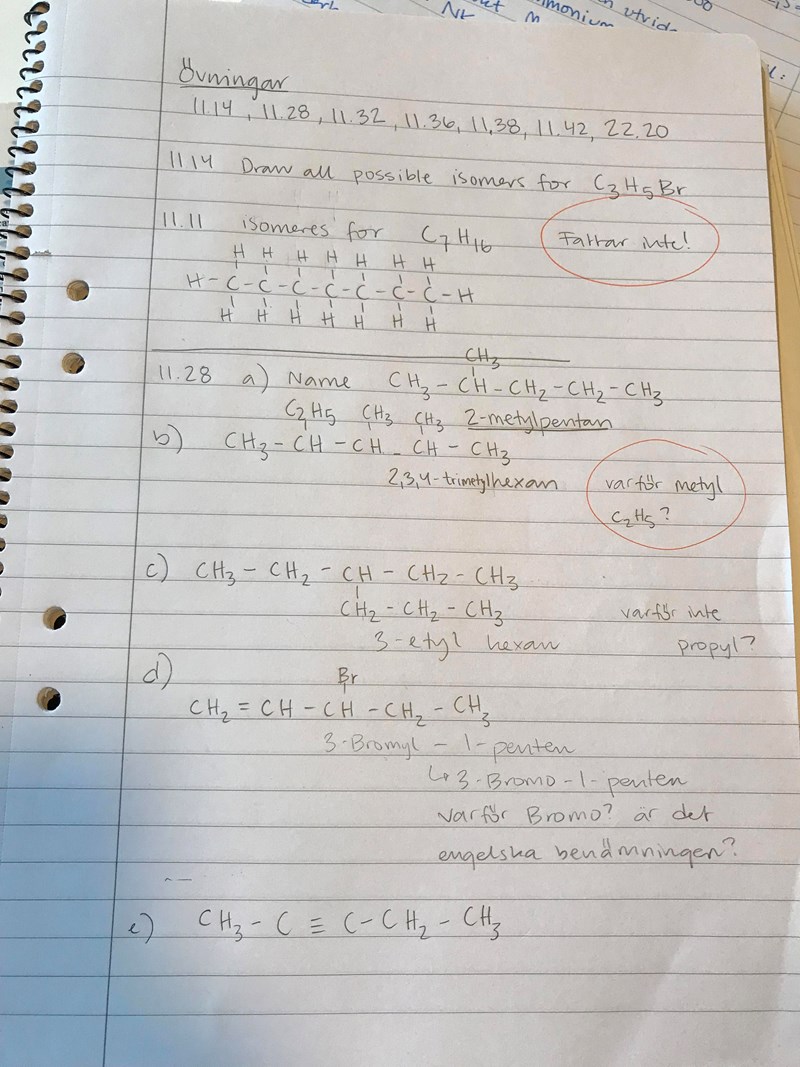 Nt
M
monium
utrid
Övningar
11.14, 11.28, 11.32, 11.36, 11,38, 11.42, 22.20
11.14 Draw all possible isomers for C₃H₅Br
11.11 isomeres for C₇H₁₆
Fattar inte!
H H H H H H H
H-C-C-C-C-C-C-C-H
H H H H H H H
CH₃
11.28 a) Name CH₃-CH-CH₂-CH₂-CH₃
C₂H₅ CH₃ CH₃ 2-metylpentan
b) CH₃-CH-CH-CH-CH₃
2,3,4-trimetylhexan
varför metyl
C₂H₅?
c) CH₃-CH₂-CH-CH₂-CH₃
CH₂-CH₂-CH₃ varför inte
3-etyl hexan propyl?
d) Br
CH₂=CH-CH-CH₂-CH₃
3-Bromyl-1-penten
↳3-Bromo-1-penten
varför Bromo? är det
engelska benämningen?
e) CH₃-C≡C-CH₂-CH₃